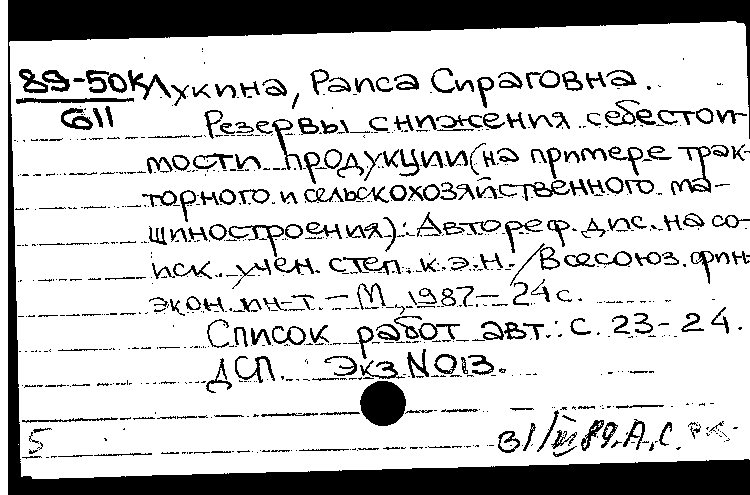 89-50К Лукина, Раиса Сираговна.
611 Резервы снижения себестои-
мости продукции (на примере трак-
торного и сельскохозяйственного ма-
шиностроения): Автореф. дис. на со-
иск. учен. степ. к.э.н. / Всесоюз. фин.-
экон. ин-т. - М., 1987 - 24 с.
Список работ авт.: с. 23-24.
ДСП. Экз N013.
5 31/ 89. А.С.